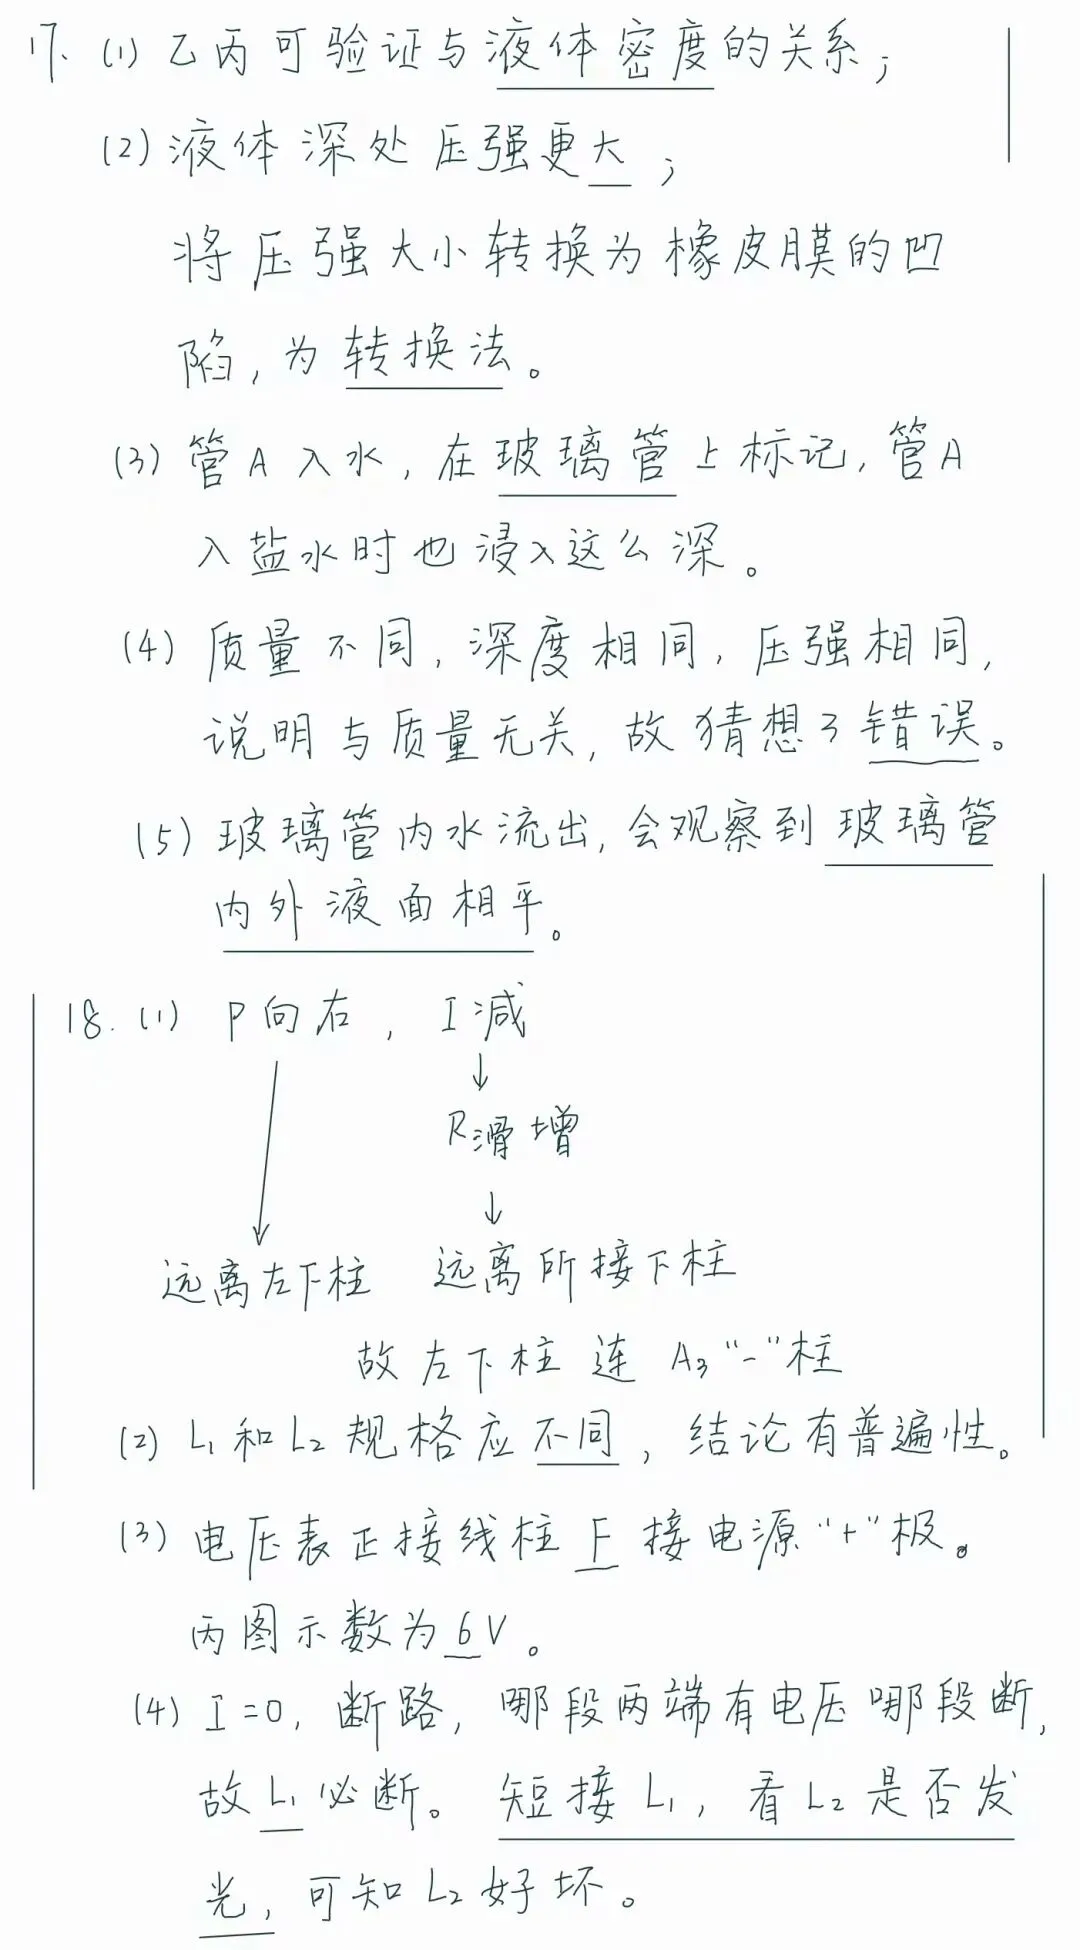 17. (1) 乙丙可验证与液体密度的关系;
(2) 液体深处压强更大;
将压强大小转换为橡皮膜的凹
陷,为转换法。
(3) 管A入水,在玻璃管上标记,管A
入盐水时也浸入这么深。
(4) 质量不同,深度相同,压强相同,
说明与质量无关,故猜想3错误。
(5) 玻璃管内水流出,会观察到玻璃管
内外液面相平。
18. (1) P向右, I减
↓
R滑增
↓
远离左下柱 远离所接下柱
故左下柱连 A3 "-"柱
(2) L1和L2规格应不同,结论有普遍性。
(3) 电压表正接线柱F接电源"+"极。
丙图示数为6V。
(4) I=0,断路,哪段两端有电压哪段断,
故L1必断。短接L1,看L2是否发
光,可知L2好坏。